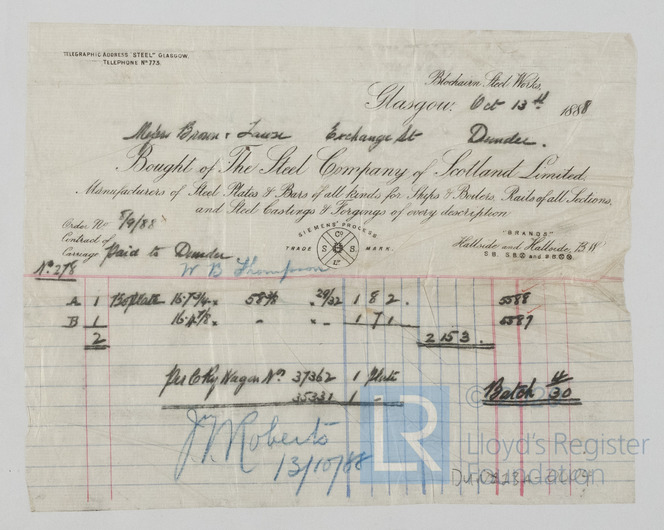 TELEGRAPHIC ADDRESS "STEEL" GLASGOW.
TELEPHONE No 773.
Blochairn Steel Works,
Glasgow. Oct 13th 1888
Messrs Brown & Exchange St Dundee.
Bought of The Steel Company of Scotland Limited.
Manufacturers of Steel Plates & Bars of all kinds for Ships & Boilers, Rails of all Sections,
and Steel Castings & Forgings of every description
Order No 8/9/88
Contract of
Carriage Paid to Dundee
SIEMENS' PROCESS
TRADE MARK.
"BRANDS"
Hallside and Hallside, B.W.
No 278
W B Thompson
A 1 BoPlate 16.7 3/4 x 58 x 29/32 1 8 2 . 5588
B 1 16.4 7/8 x - x - 1 7 1 5587
2 2 153 .
Per C Ry Wagon Nos 37362 1 plate
35331 1 -
Batch 30
Roberts
13/10/88
LR
Lloyd's Register
Foundation